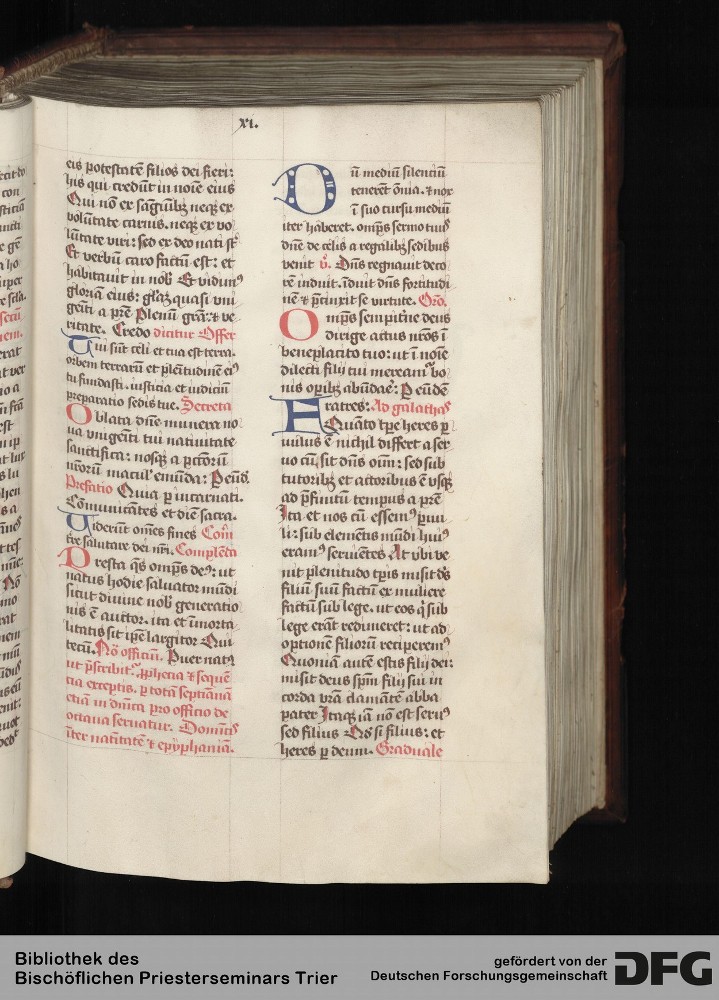 xi.
eis potestatē filios dei fieri:
his qui credūt in noīe eius
Qui nō ex sāgūībꝫ neqꝫ ex
volūtate carnis. neqꝫ ex vo
lūtate viri: sed ex deo nati sť
Et verbū caro factū est: et
habitauit in nob̄ Et vidimꝰ
gloriā eius: gl̄aꝫ quasi vni
geīti a pr̄e Plenū gr̄a: ⁊ ve
ritate. Credo dicitur Offer
Tui sūt celi et tua est terra.
orbem terrarū et plēitudinē eiꝰ
tu fundasti. iusticia et iudiciū
p̄paratio sedis tue. Secreta
Oblata dn̄e munera no
ua vnigeīti tui natiuitate
sanctifica: nosqꝫ a pctōrū
nr̄orū macul̓ emūda: Ꝑ eūd.
Prefatio Quia ꝑ incarnati.
Cōmunicātes et diē sacra.
Viderūt om̄es fines Com̄
tr̄e salutare dei nr̄i. Complēta
Presta qs̄ omp̄s deꝰ: ut
natus hodie saluator mūdi
sicut diuine nob̄ generatio
nis ē auctor. ita et īmorta
litatis sit ip̄e largitor Qui
tecū. Nō officiū. Puer natꝰ
ut p̄scribit᷑. ꝓphecia ⁊ sequē
tia exceptis. ꝑ totā septimānā
etiā in dn̄ica pro officio de
octaua seruatur. Dominicꝰ
īter natītatē ⁊ epyphaniā.
Dū mediū silenciū
tenerēt om̄ia. ⁊ nox
ī suo cursu mediū
iter haberet. omp̄s sermo tuꝰ
dn̄e de celis a regalibꝫ sedibus
venit v̄. Dn̄s regnauit deco
rē induit. īduit dn̄s fortitudi
nē ⁊ p̄cinxit se virtute. Oro.
Omp̄s sempit̄ne deus
dirige actus nr̄os ī
beneplacito tuo: ut ī noīe
dilecti filij tui mereamᷣ bo
nis oꝑibꝫ abūdaē: Ꝑ eūdē
Fratres: Ad galathaˢ
Quāto tp̄e heres p
uulus ē nichil differt a ser
uo cū sit dn̄s om̄: sed sub
tutoribꝫ et actoribus ē vsqꝫ
ad p̄finitū tempus a pr̄e
Ita et nos cū essemꝰ puu
li: sub elementis mūdi huiꝰ
eramꝰ seruiētes At vbi ve
nit plenitudo tp̄is misit dˢ
filiū suū factū ex muliere
factū sub lege. ut eos q̇ sub
lege erāt redimeret: ut ad
optionē filiorū reciperemꝰ
Quoniā autē estis filij dei:
misit deus sp̄m filij sui in
corda vr̄a clamātē abba
pater Itaqꝫ iā nō est seruꝰ
sed filius Qd̄ si filius: et
heres ꝑ deum. Graduale
Bibliothek des
Bischöflichen Priesterseminars Trier
gefördert von der
Deutschen Forschungsgemeinschaft
DFG